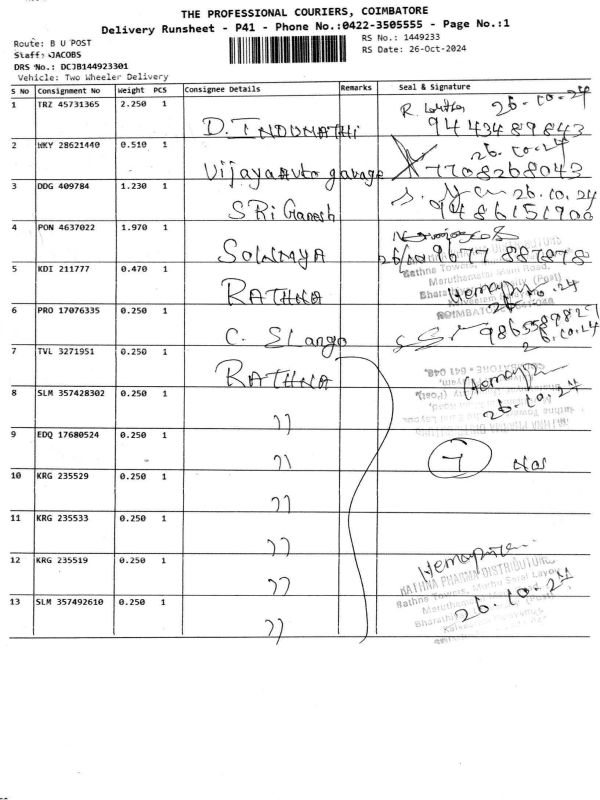 THE PROFESSIONAL COURIERS, COIMBATORE
Delivery Runsheet - P41 - Phone No.:0422-3505555 - Page No.:1
Route: B U POST
RS No.: 1449233
Staff: JACOBS
RS Date: 26-Oct-2024
DRS No.: DCJB144923301
Vehicle: Two Wheeler Delivery
S No Consignment No Weight PCS Consignee Details Remarks Seal & Signature
1 TRZ 45731365 2.250 1 D. INDUMATHI 26-10-24
9443489843
2 MKY 28621440 0.510 1 Vijaya Auto garage 26.10.24
7708268043
3 DDG 409784 1.230 1 SRi Ganesh 26.10.24
4 PON 4637022 1.970 1 SOWMYA 9677 887878
5 KDI 211777 0.470 1 RATHNA
Rathna Towers,
Maruthamalai Main Road,
6 PRO 17076335 0.250 1 C. Elango
26.10.24
7 TVL 3271951 0.250 1 RATHNA
26.10.24
8 SLM 357428302 0.250 1 ''
9 EDQ 17680524 0.250 1 '' 7
10 KRG 235529 0.250 1 ''
11 KRG 235533 0.250 1 ''
12 KRG 235519 0.250 1 ''
RATHNA PHARMA DISTRIBUTORS
Rathna Towers,
13 SLM 357492610 0.250 1 '' 26.10.24